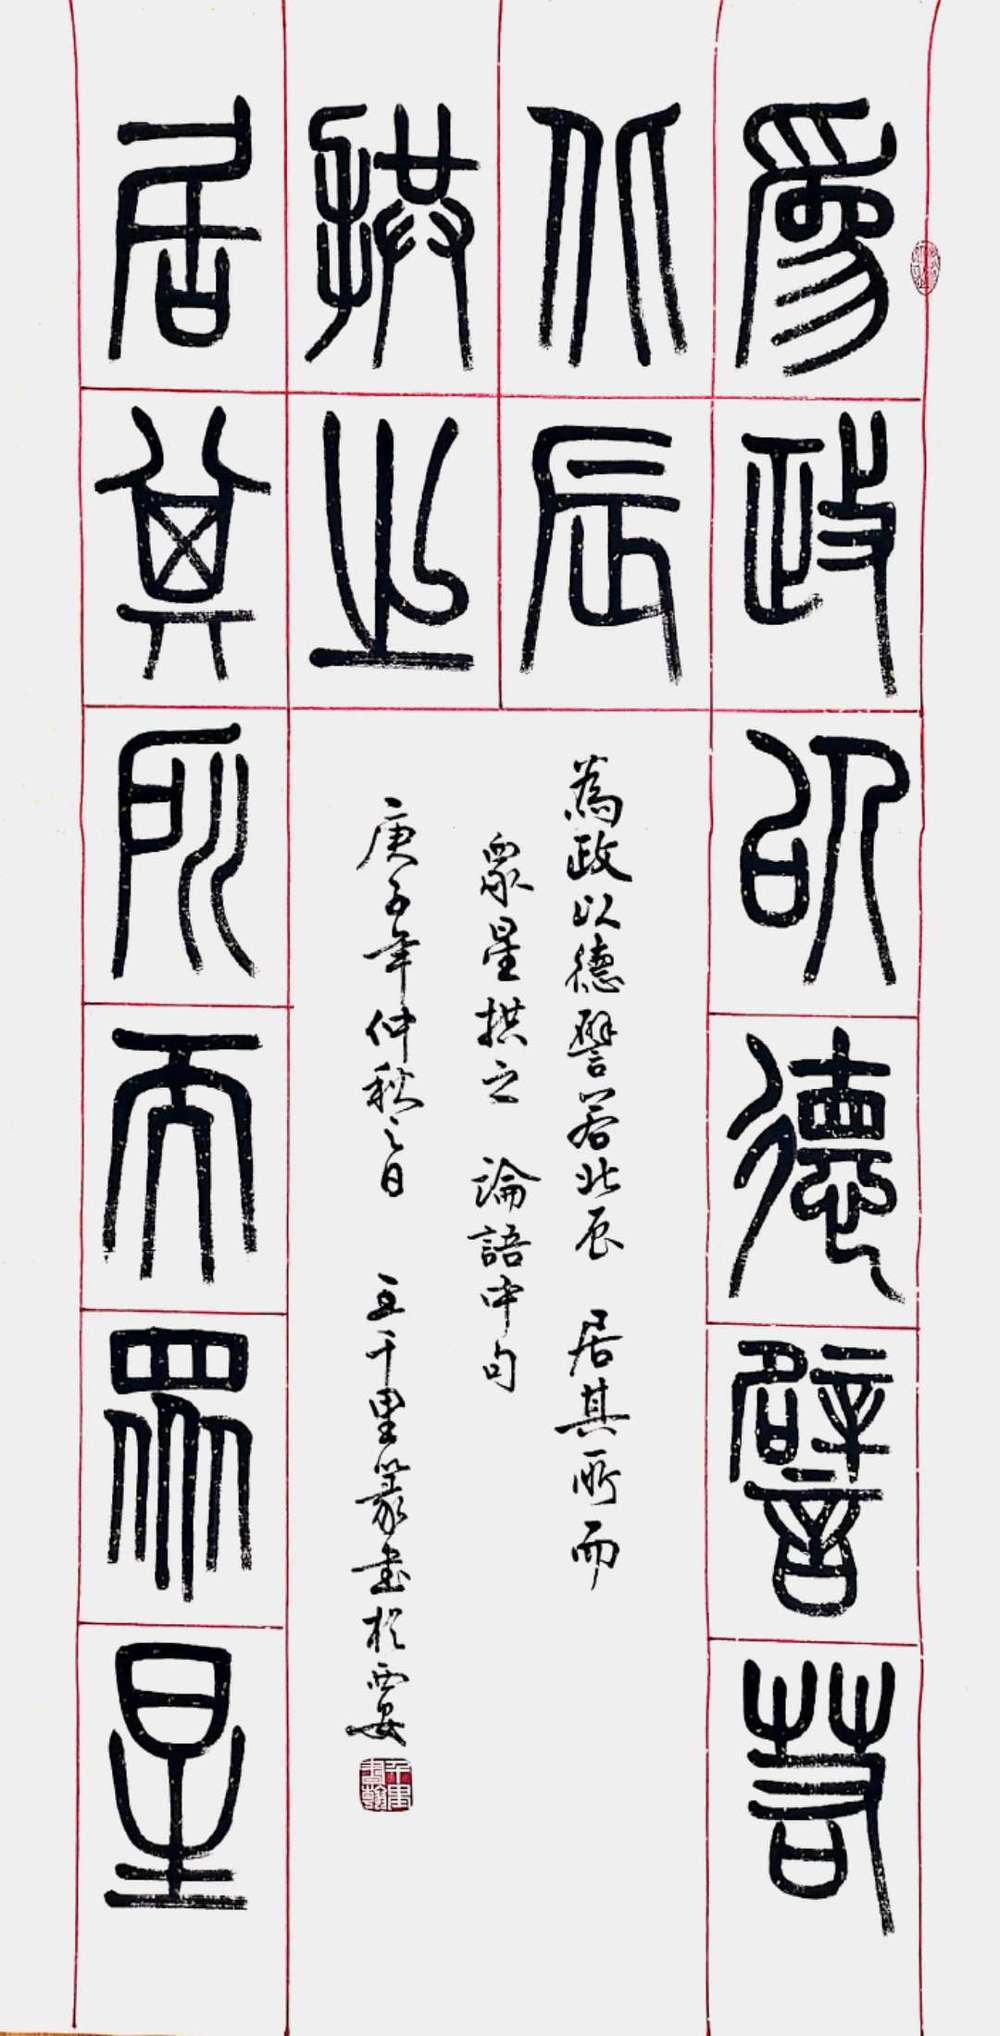 爲政以德譬若
北辰
居其所而眾星
拱之
為政以德譬若北辰 居其所而
衆星拱之 論語中句
庚子年仲秋之日 王千里篆書於西安